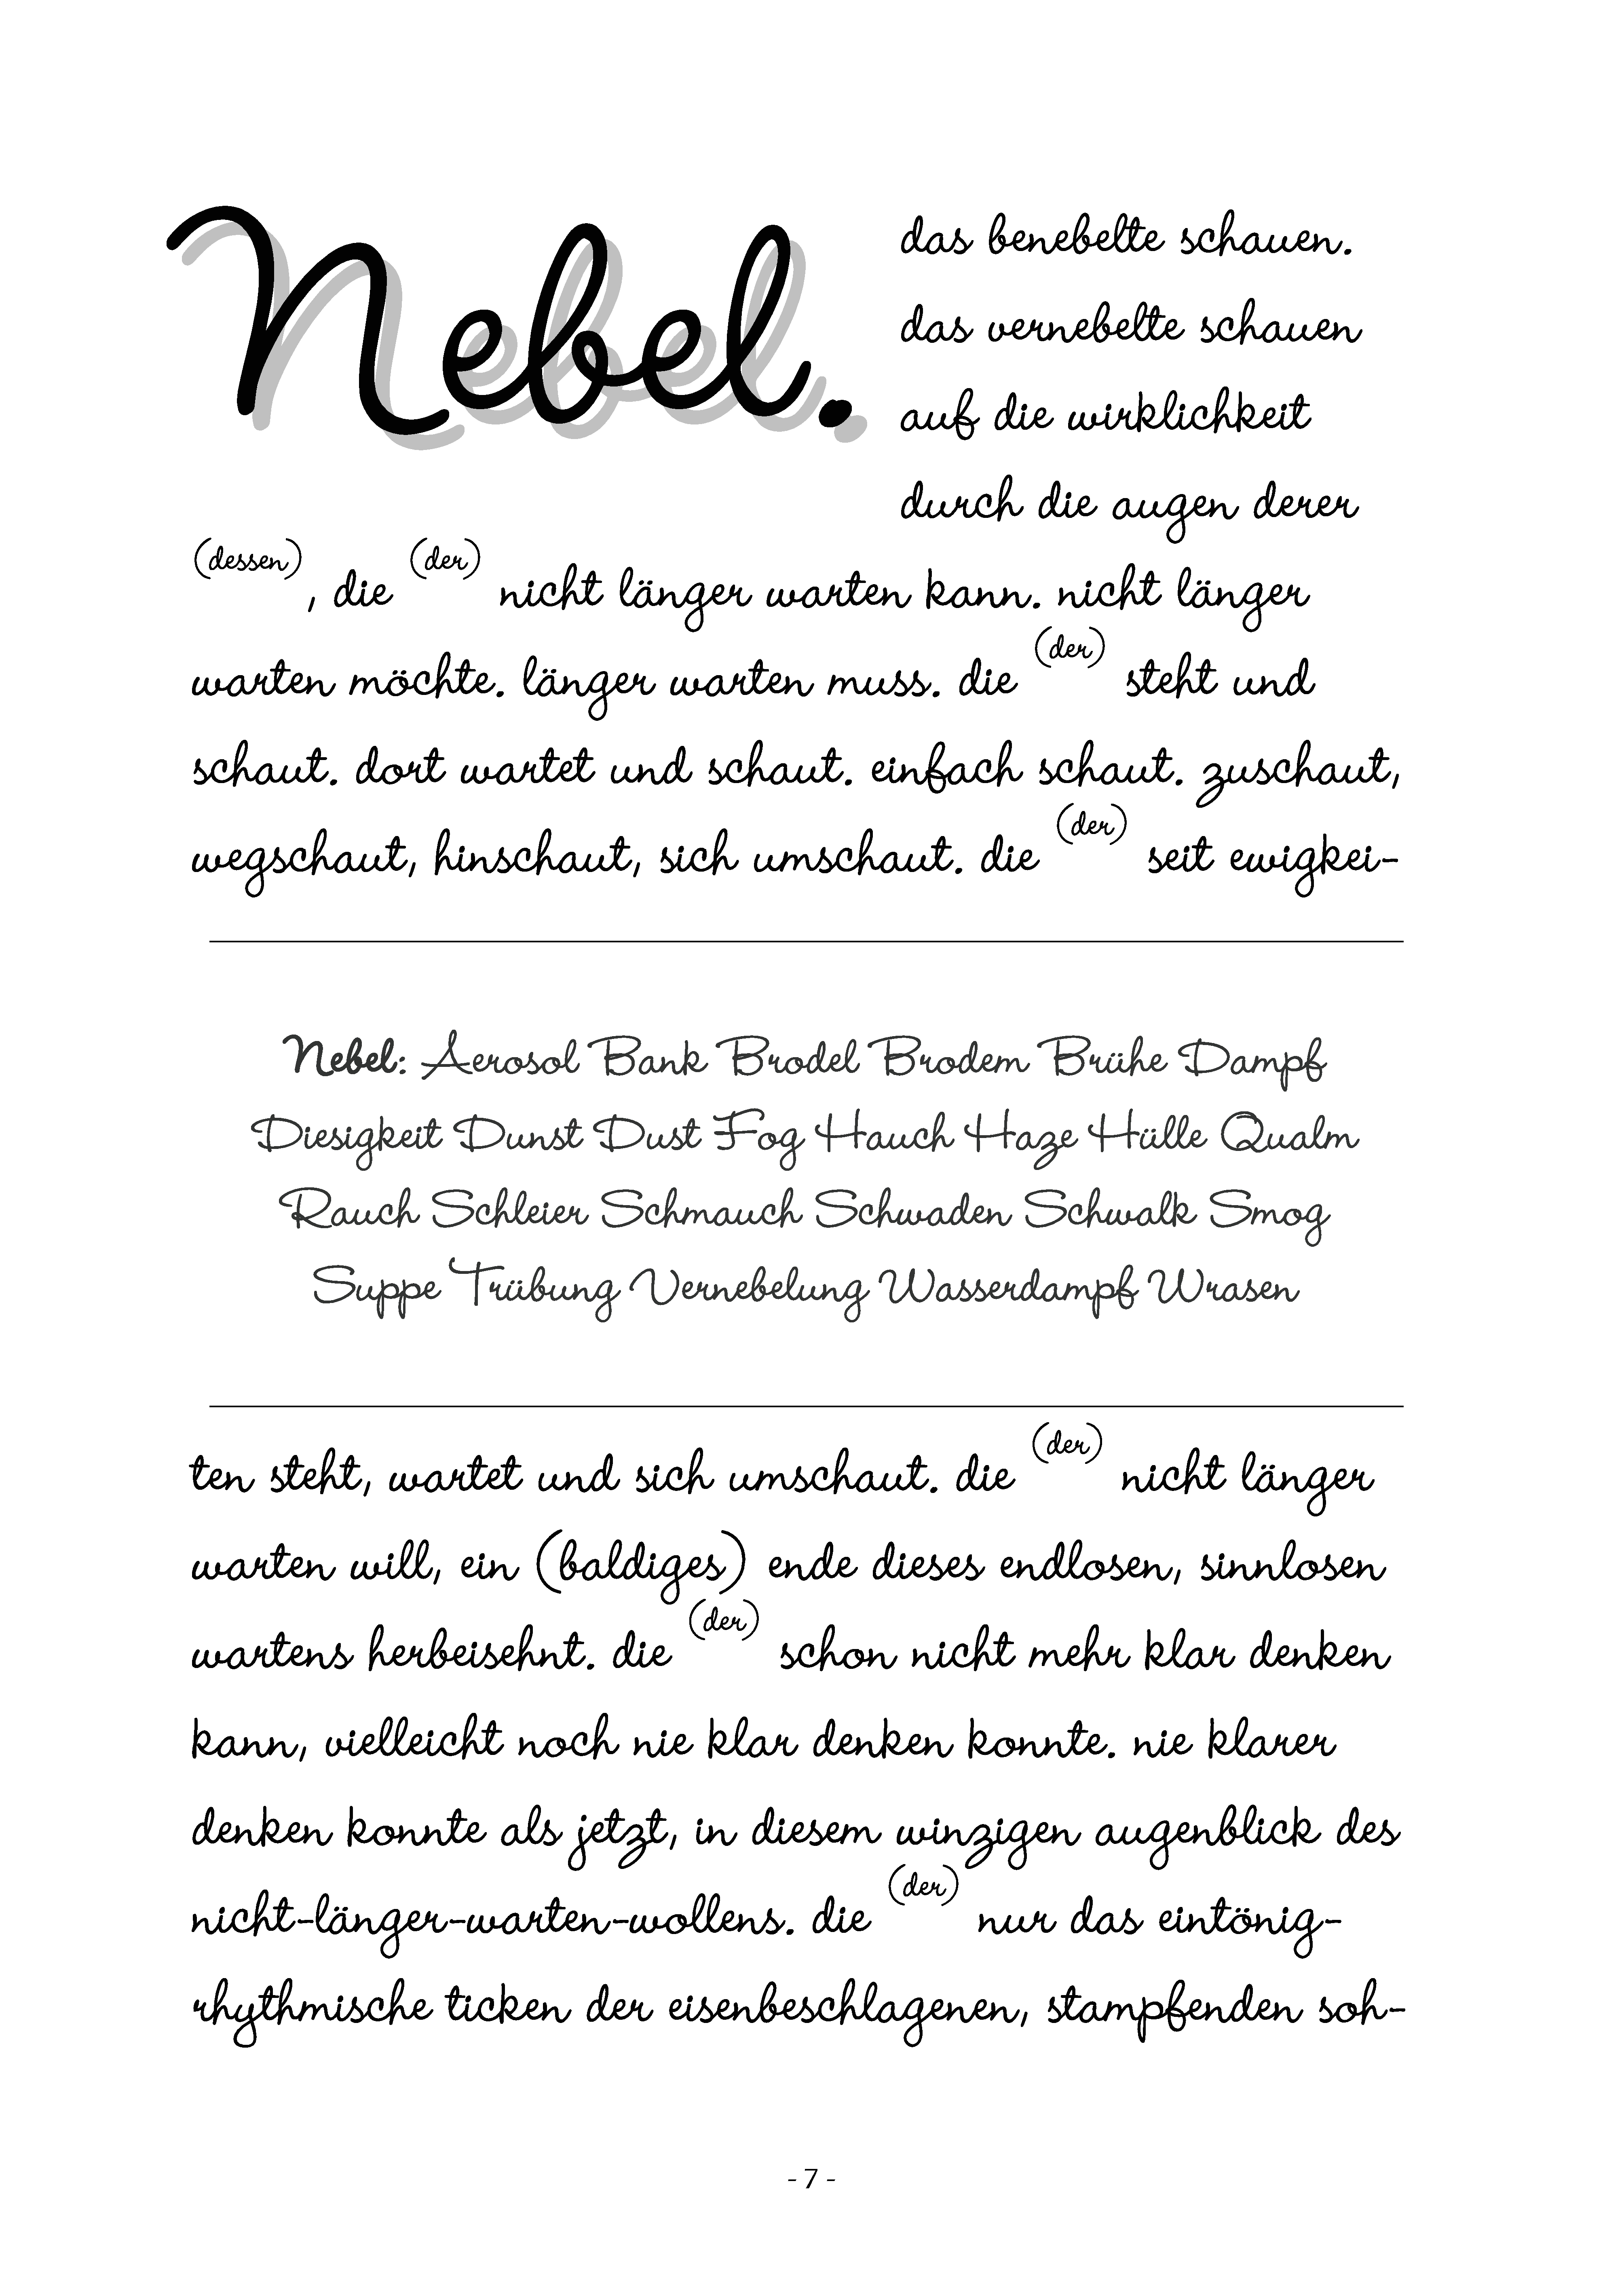 Nebel.
das benebelte schauen.
das vernebelte schauen
auf die wirklichkeit
durch die augen derer
(dessen), die (der) nicht länger warten kann. nicht länger
warten möchte. länger warten muss. die (der) steht und
schaut. dort wartet und schaut. einfach schaut. zuschaut,
wegschaut, hinschaut, sich umschaut. die (der) seit ewigkei-
Nebel: Aerosol Bank Brodel Brodem Brühe Dampf
Diesigkeit Dunst Dust Fog Hauch Haze Hülle Qualm
Rauch Schleier Schmauch Schwaden Schwalk Smog
Suppe Trübung Vernebelung Wasserdampf Wrasen
ten steht, wartet und sich umschaut. die (der) nicht länger
warten will, ein (baldiges) ende dieses endlosen, sinnlosen
wartens herbeisehnt. die (der) schon nicht mehr klar denken
kann, vielleicht noch nie klar denken konnte. nie klarer
denken konnte als jetzt, in diesem winzigen augenblick des
nicht-länger-warten-wollens. die (der) nur das eintönig-
rhythmische ticken der eisenbeschlagenen, stampfenden soh-
- 7 -